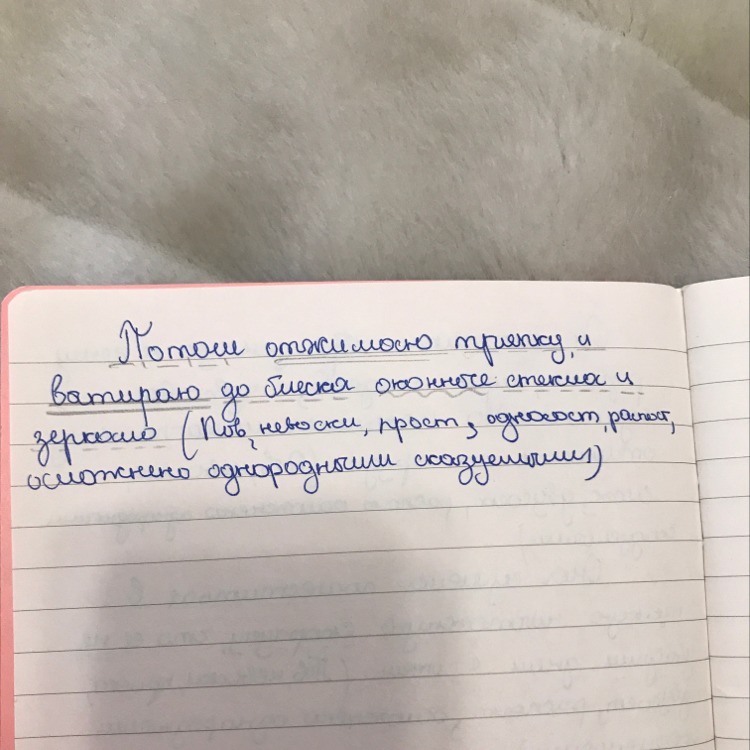 Потом отжимаю тряпку, и
вытираю до блеска оконные стекла и
зеркало (Пов, невоскл, прост, односост, распост,
осложнено однородными сказуемыми)